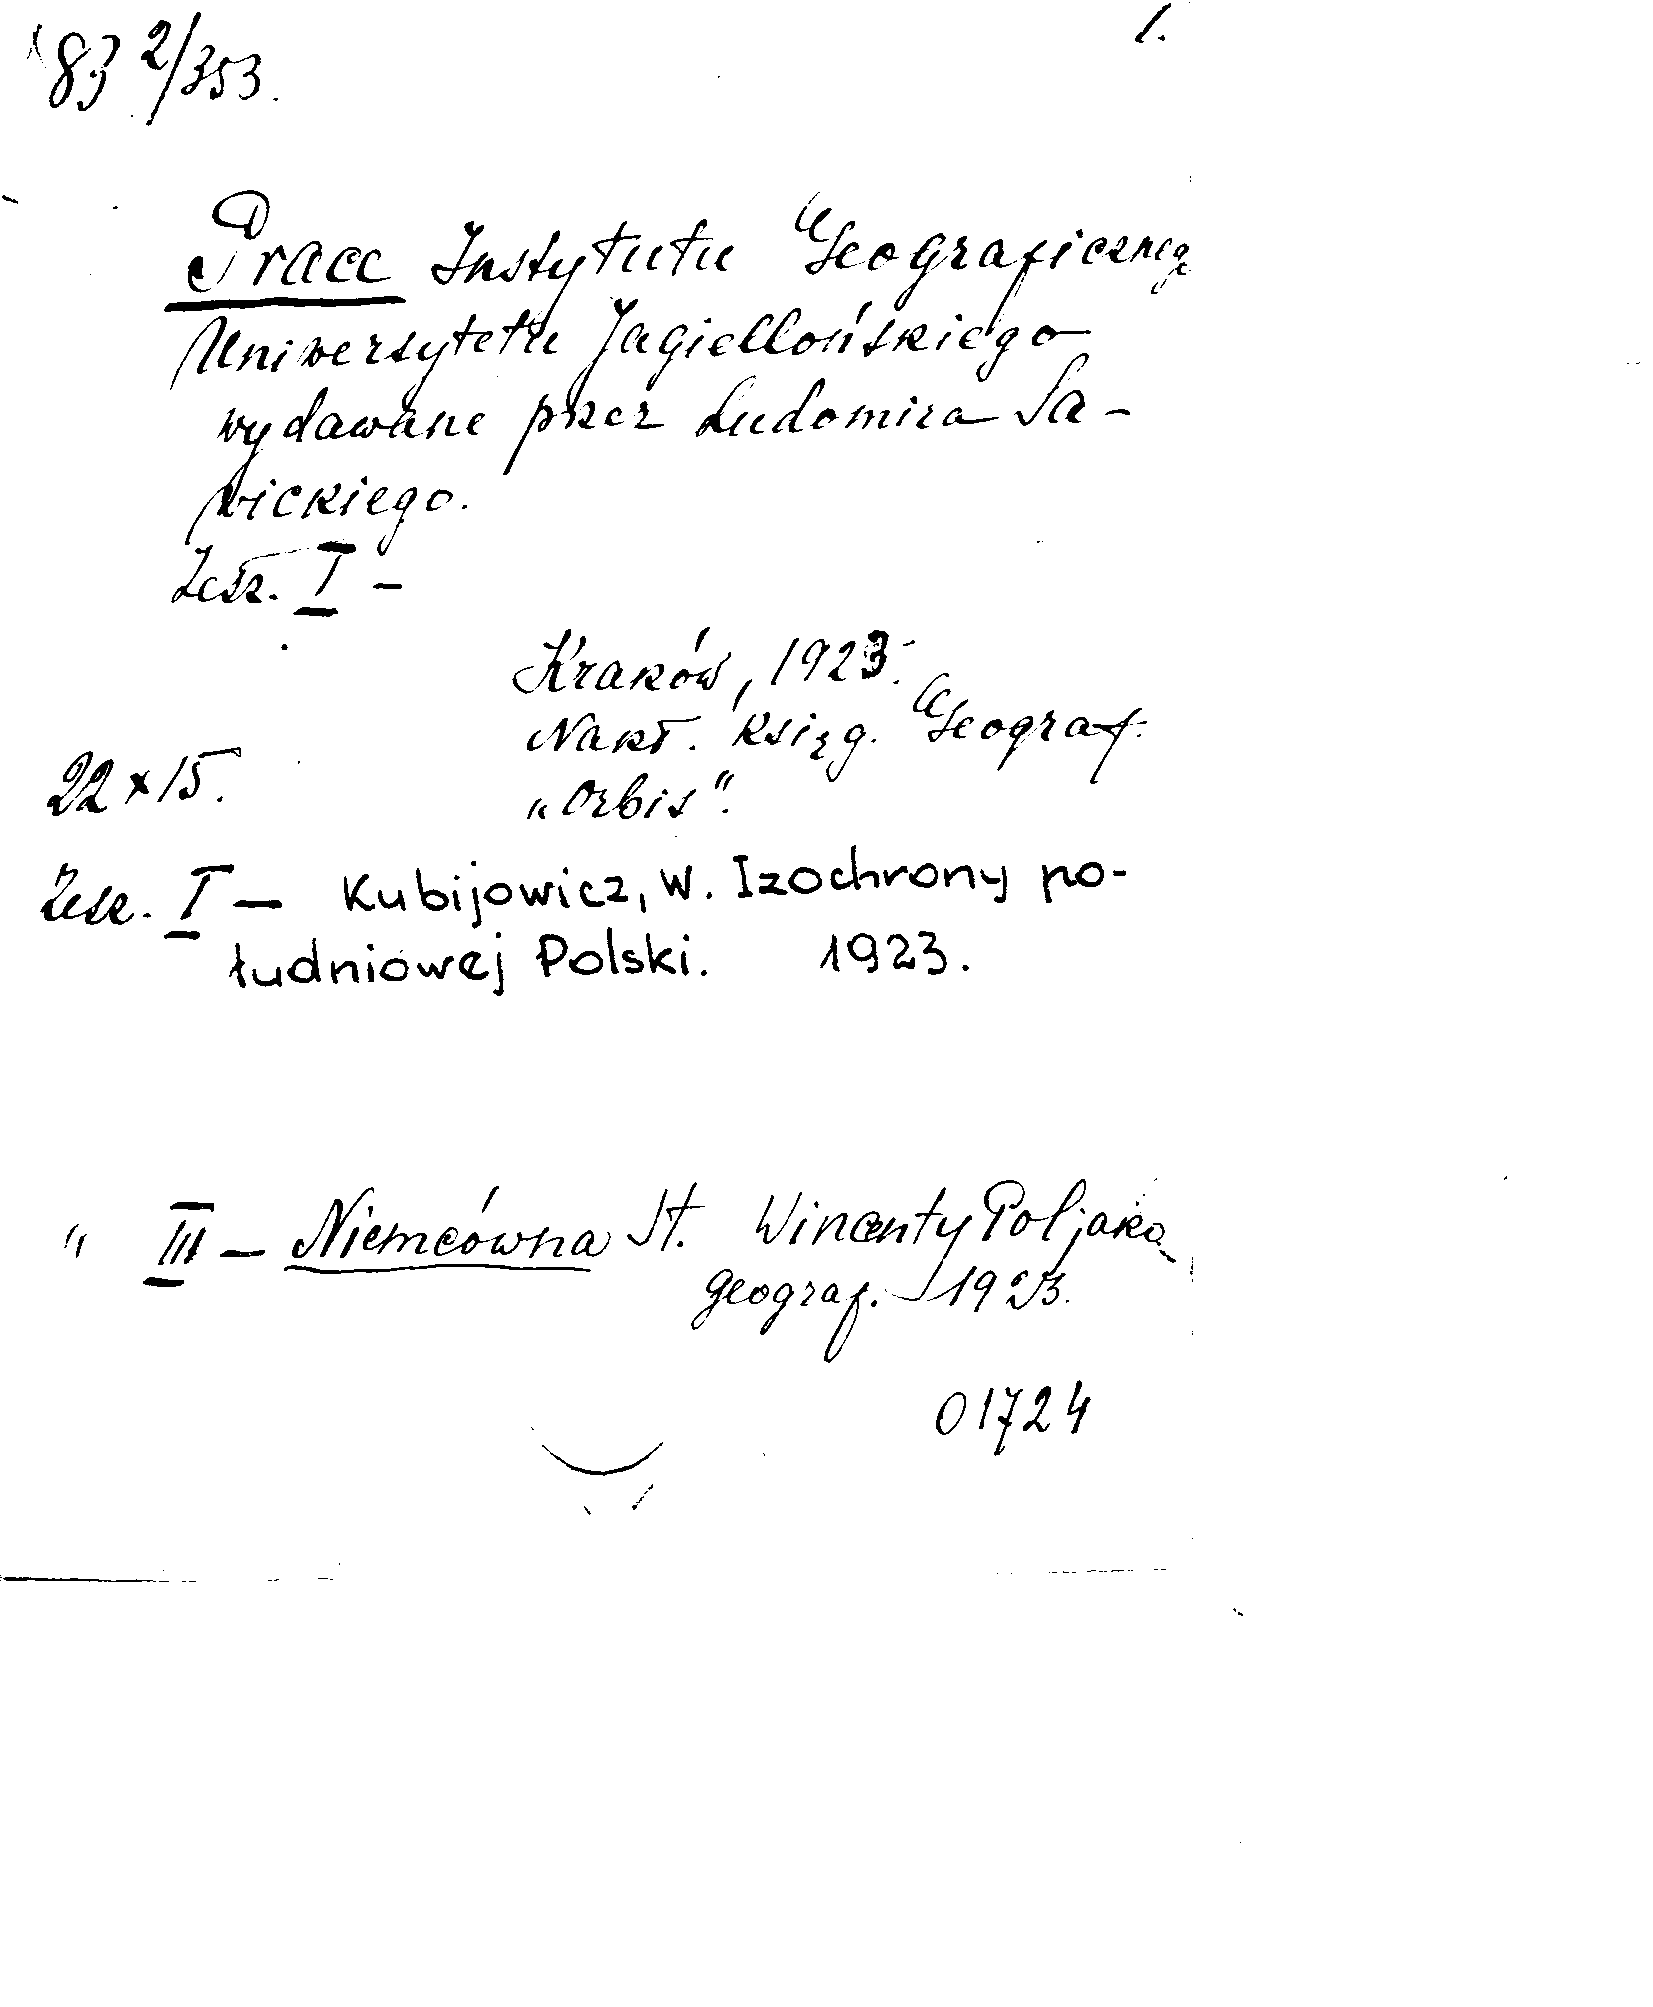 1.
83 2/353.
Prace Instytutu Geograficzneg
Uniwersytetu Jagiellońskiego
wydawane przez Ludomira Sa-
wickiego.
Zesz. I -
Kraków, 1923.
Nakł. Księg. Geograf.
22 x 15.
„Orbis".
Zesz. I — Kubijowicz, W. Izochrony po-
łudniowej Polski. 1923.
" III — Niemcówna St. Wincenty Pol jako
geograf. 1923.
01724